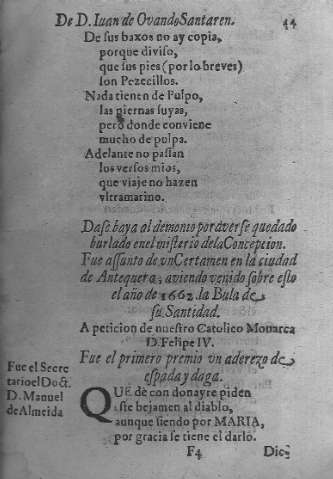 De D. Iuan de Ovando Santaren. 44
De sus baxos no ay copia,
porque diviso,
que sus pies (por lo breves)
son Pezecillos.
Nada tienen de Pulpo,
las piernas suyas,
pero donde conviene
mucho de pulpa.
Adelante no passan
los versos mios,
que viaje no hazen
vltramarino.
Dase baya al demonio por averse quedado
burlado en el misterio de la Concepcion.
Fue assunto de vn Certamen en la ciudad
de Antequera, aviendo venido sobre esto
el año de 1662. la Bula de
su Santidad.
A peticion de nuestro Catolico Monarca
D. Felipe IV.
Fue el primero premio vn aderezo de
espada y daga.
Fue el Secre
tario el Doct.
D. Manuel
de Almeida
QUE dè con donayre piden
este bejamen al diablo,
aunque siendo por MARIA,
por gracia se tiene el darlo.
F4 Dic